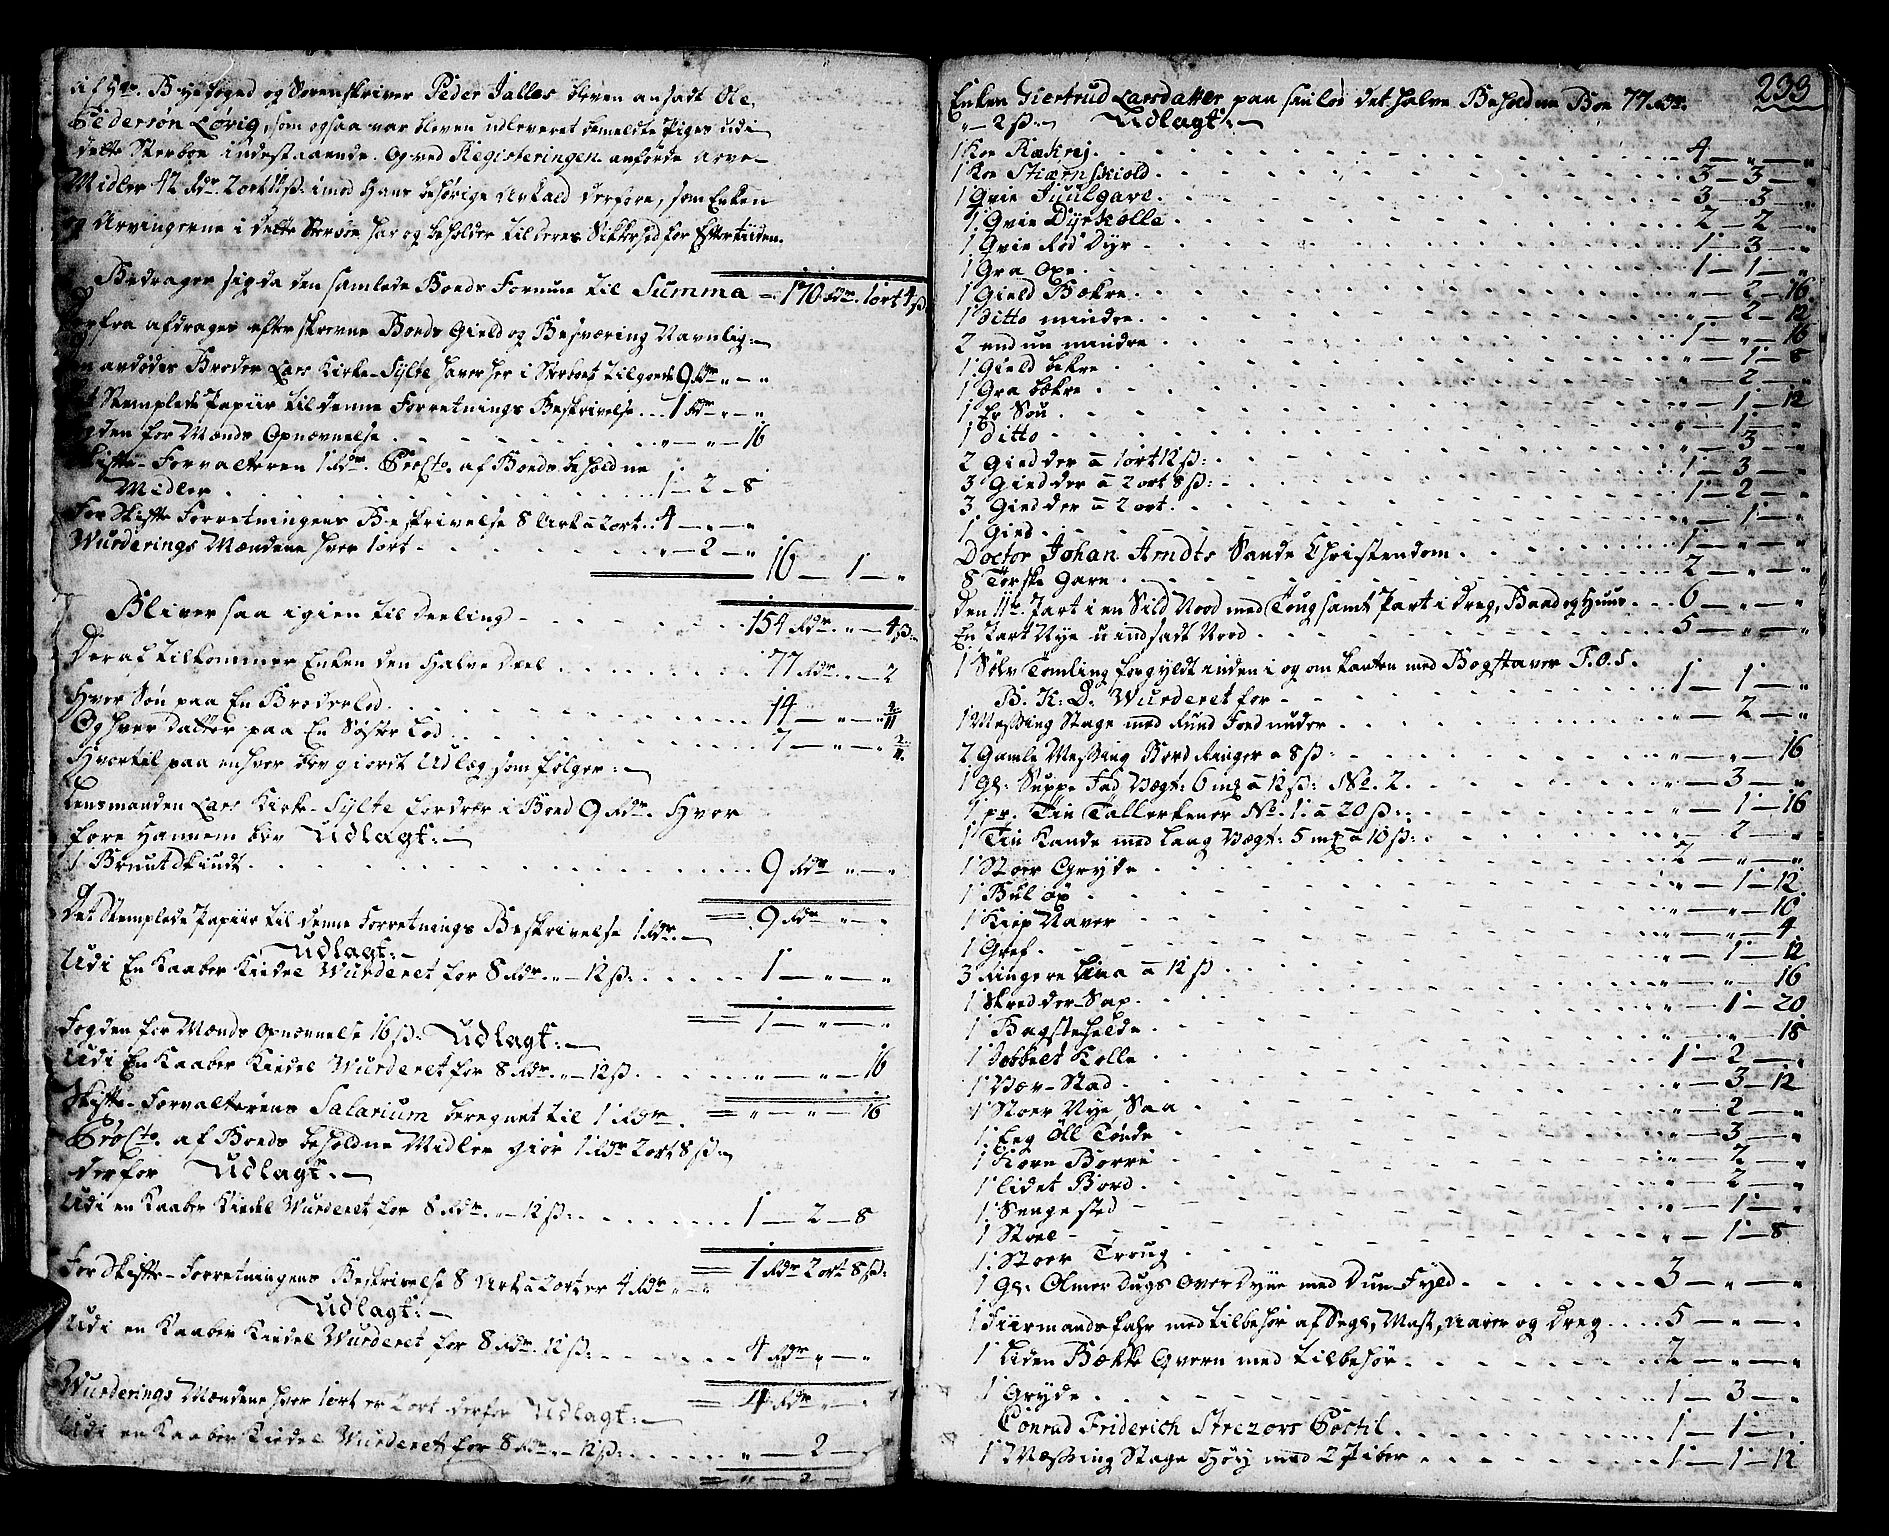 af Hr. Byefoged og Sorenskriver Peder Jalles bleven ansadt Ole
Pederson Lövig, som ogsaa var bleven udleveret bemeldte Piges udi
dette Sterboe indestaaende. Og ved Registeringen anförde arve-
Midler 42 Rdr. 2 ort imod Hans behörige afkald derfore, som Enken
og Arvingerne i dette Sterboe har og beholder til deres Sikkerhed for Eftertiiden.
Bedrager sig da den samlede Boeds Formue til Summa - 170 Rdr. 1 ort 4 ß
Herfra afdrages efterskrevne Boeds Gield og Besværing Navnlig:
Den avdödes Broder Lars Kirke-Sylte haver her i Sterboet tilgode 9 Rdr „ — „
Det Stemplede Papiir til denne Forretnings Beskrivelse ... 1 Rdr „ — „
Fogden for Mænds Opnævnelse . . . „ — „ — 16
Skifte-Forvalteren 1 Rdr. ProCto. af Boeds beholdne
Midler . . . 1 — 2 — 8
For Skifte Forretningens Beskrivelse 8 Ark a 2 ort . . 4 — „ — „
Wurderings Mændene hver 1 ort . . . „ — 2 — „
16 — 1 — „
Bliver saa igien til deeling . . . 154 Rdr. „ — 4 ß
Deraf tilkommer Enken den Halve Deel . . . 77 Rdr. „ — 2
Hver Sön paa En Broderlod . . . 14 — „ — „ 4/11
Og hver Datter paa En Söster Lod . . . 7 — „ — „ 2/11
Hvortil paa enhver bev giordt Udlæg som fölger:
Lensmanden Lars Kirke-Sylte fordrer i Boed 9 Rdr. Hvor
fore Hannem bev Udlagt:
1 Bruutskiudt . . . 9 Rdr „ — „
= 9 Rdr „ — „
Det Stemplede Papiir til denne Forretnings Beskrivelse 1 Rdr.
Udlagt:
Udi En Kaaber Kiedel Wurderet for 8 Rdr. „ — 12 ß: . . . 1 — „ — „
= 1 — „ — „
Fogden for Mænds opnævnelse 16 ß: Udlagt:
Udi En Kaaber Kiedel Wurderet for 8 Rdr. „ — 12 ß . . . „ — „ — 16
= „ — „ — 16
Skifte-Forvalterens Salarium beregnet til 1 Rdr
ProCto. af Boeds beholdne Midler giör 1 Rdr 2 ort 8 ß
derfor Udlagt:
Udi en Kaaber Kiedel Wurderet for 8 Rdr. „ — 12 ß: . . . 1 — 2 — 8
= 1 Rdr 2 ort 8 ß:
For Skifte-Forretningens Beskrivelse 8 Ark a 2 ort er 4 Rdr „ — „
Udlagt:
Udi en Kaaber Kiedel Wurderet for 8 Rdr. 12 ß: . . . 4 Rdr „ — „
= 4 Rdr „ — „
Wurderings Mændene hver 1 ort er 2 ort derfor Udlagt:
Udi en Kaaber Kiedel Wurderet for 8 Rdr. „ — 12 ß: . . . „ — 2 —
= „ — 2 —
233
Enken Giertrud Larsdatter paa sin lod det halve Beholdne Boe 77 Rdr.
„ — 2 ß: Udlagt:
1 Koe Rækrej . . . 4 — „ — „
1 Koe Stiærnskiold . . . 3 — 3 — „
1 Qvie Juulgave . . . 3 — 3 — „
1 Qvie Dyrkolla . . . 2 — 2 — „
1 Qvie Röd Dyr . . . 1 — 3 — „
1 Graa Oxe . . . 1 — 1 — „
1 Gield Bækre . . . „ — 2 — 16
1 ditto mindre . . . „ — 2 — 12
2 end nu mindre . . . 1 — „ — 16
1 Gield bekre . . . „ — 1 — 8
1 Graa bekre . . . „ — 2 — „
1 Er Sou . . . „ — 1 — 12
1 ditto . . . „ — 1 — „
2 Giedder a 1 ort 12 ß: . . . „ — 3 — „
3 Giedder a 2 ort 8 ß: . . . 1 — 3 — „
3 Giedder a 2 ort . . . 1 — 2 — „
1 Gied . . . „ — 1 — „
Doctor Johan Arndts Sande Christendom . . . 1 — „ — „
8 Torske Garn . . . 2 — „ — „
Den 11te. Part i en Sild Nood med Toug samt Part i Dreg, Baad og Huus . . . 6 — „ — „
En Part Nye uindsadt Nood . . . 5 — „ — „
1 Sölv Tömling forgyldt inden i og om kanten med Bogstaver P. O. S.
B. K: D: Wurderet for . . . 1 — 1 — „
1 Messing Stage med Rund Foed under . . . „ — 2 — „
2 Gamle Messing Bord Ringer a 8 ß: . . . „ — „ — 16
1 Gl: Suppe Fad Vægt: 6 mk a 12 ß: No. 2. . . . „ — 3 — „
1 pr. Tin Tallerkener No. 1. a 20 ß: . . . „ — 1 — 16
1 Tin Kande med laag Vægt: 5 mk a 10 ß: . . . „ — 2 — „
1 Stoer Gryde . . . 2 — „ — „
1 Bul öx . . . „ — 1 — 12
1 Kiip Naver . . . „ — „ — 10
1 Gref . . . „ — „ — 4
3 Ringere Liaa a 12 ß . . . „ — 1 — 12
1 Skredder-Sax . . . „ — „ — 16
1 Bagstehelde . . . „ — 1 — 20
1 dobbelt Kolle . . . „ — „ — 18
1 Væv-Stad . . . 1 — 2 — „
1 Stoer Nye Saa . . . „ — 3 — 12
1 Eeg Öll Tönde . . . „ — 2 — „
1 Fiore Borri . . . „ — 3 — „
1 lidet Bord . . . „ — 2 — „
1 Senge sted . . . „ — 2 — „
1 Stoel . . . „ — 1 — „
1 Stoer Troug . . . „ — 1 — 8
1 Gl: Olmerdugs Over Dyne med Dun Fyld . . . 3 — „ — „
1 Fiirmandsfahr med tilbehör af Segl, Mast, aarer og Dreg . . . 5 — „ — „
1 Liden Bække Qvern med tilbehör . . . 2 — „ — „
1 Gryde . . . 1 — 3 — „
Conrad Friderich Strezovs Postil . . . 1 — 1 —
1 Messing Stage Höy med 2 Piber . . . 1 — 1 — 12